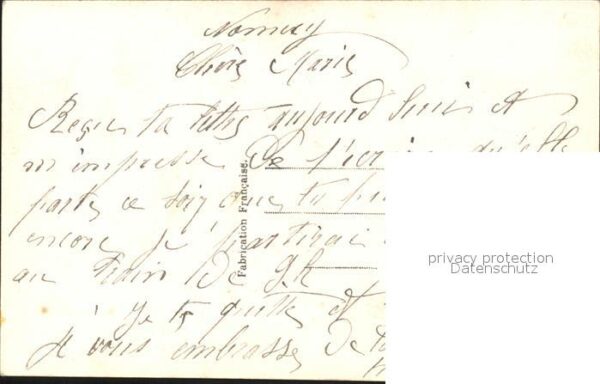 Nomeny
Chère Marie
Reçu ta lettre aujourd
m'impresse De t'ecrire qu'elle
parte ce soir que tu
encore je partirai
au train De 9 h
Je te quitte et
Je vous embrasse De
Fabrication Française.
privacy protection
Datenschutz